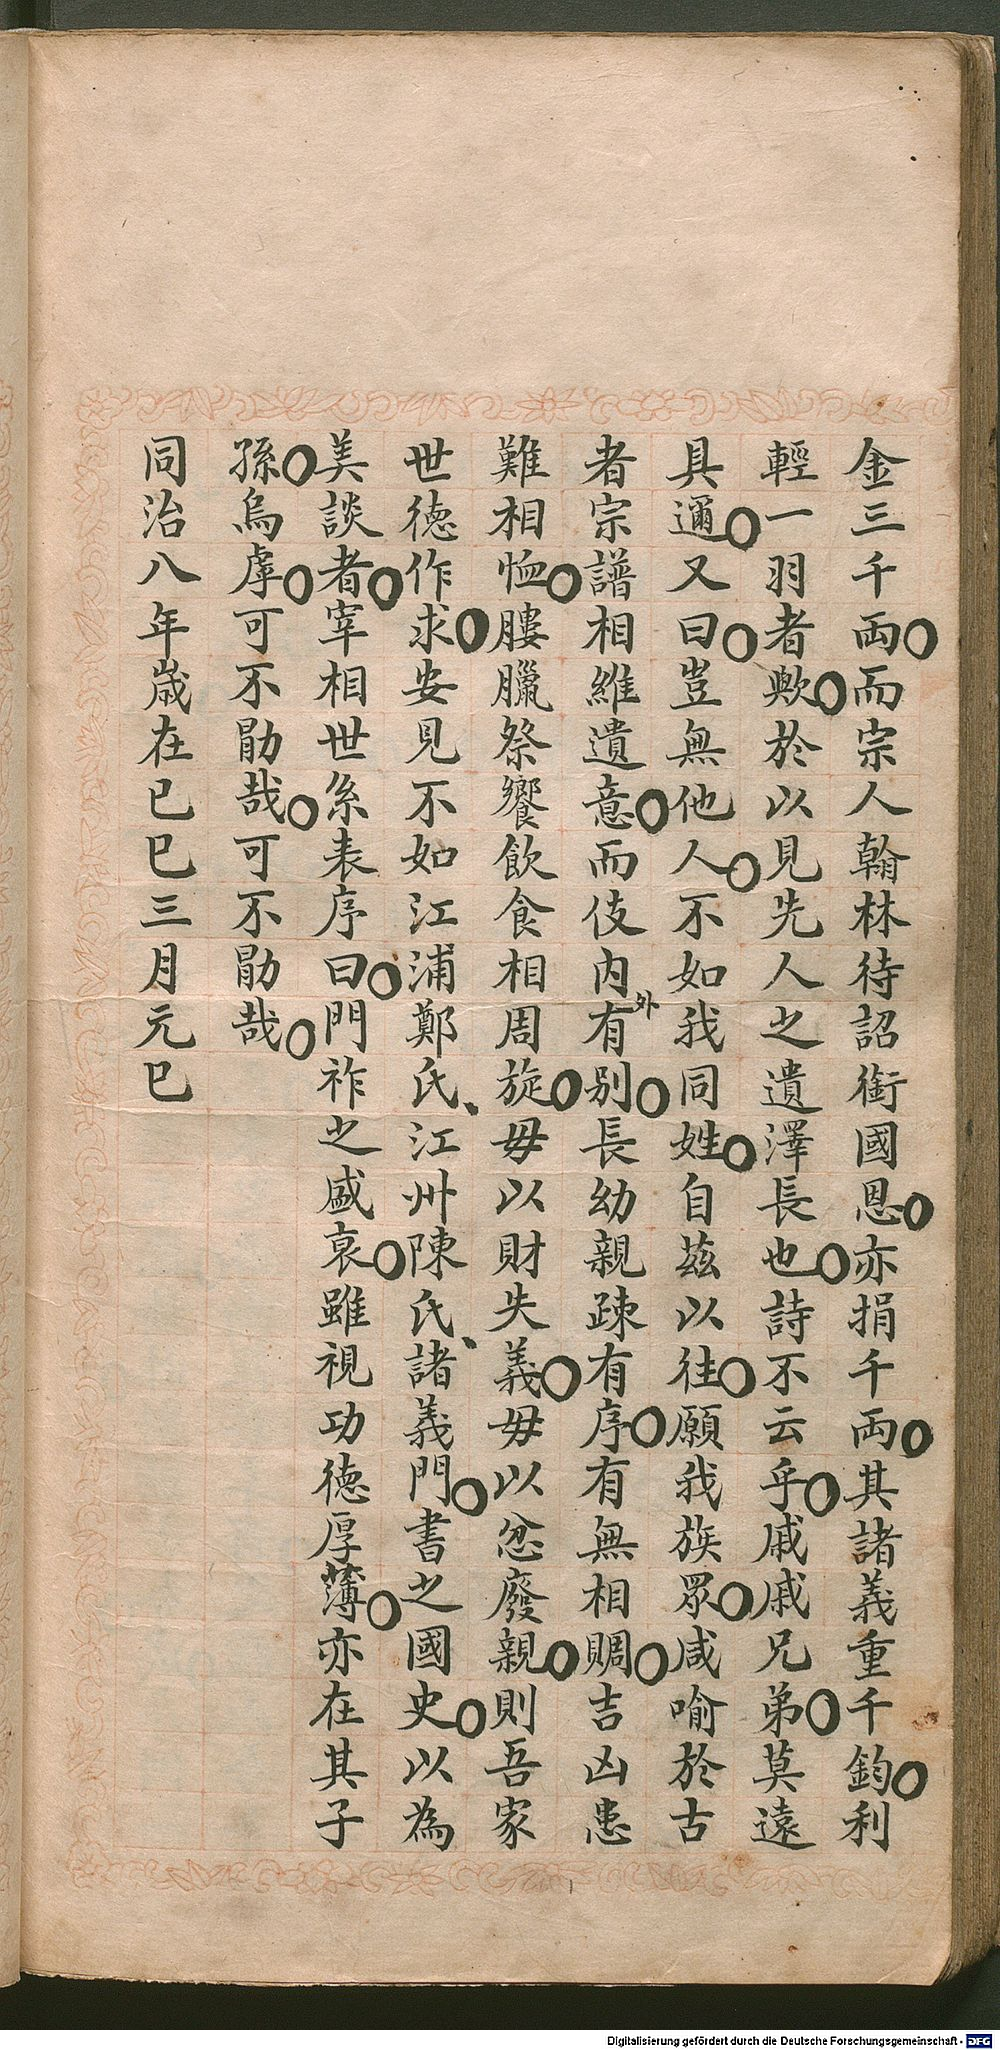 金三千兩○而宗人翰林待詔銜國恩○亦捐千兩○其諸義重千鈞○利
輕一羽者歟○於以見先人之遺澤長也○詩不云乎○戚戚兄弟○莫遠
具邇○又曰○豈無他人○不如我同姓○自茲以往○願我族眾○咸喻於古
者宗譜相維遺意○而伎內外有別○長幼親疎有序○有無相賙○吉凶患
難相恤○膢臘祭饗飲食相周旋○毋以財失義○毋以忿廢親○則吾家
世徳作求○安見不如江浦鄭氏、江州陳氏、諸義門○書之國史○以為
美談者○宰相世系表序曰○門祚之盛衰○雖視功徳厚薄○亦在其子
孫○烏虖○可不勖哉○可不勖哉○
同治八年歲在已巳三月元巳
Digitalisierung gefördert durch die Deutsche Forschungsgemeinschaft - DFG